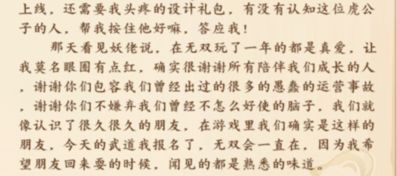 上线，还需要我头疼的设计礼包，有没有认知这位虎公
子的人，帮我按住他好嘛，答应我！
那天看见妖佬说，在无双玩了一年的都是真爱，让
我莫名眼圈有点红，确实很谢谢所有陪伴我们成长的人
，谢谢你们包容我们曾经出过的很多的愚蠢的运营事故
，谢谢你们不嫌弃我们曾经不怎么好使的脑子，我们就
像认识了很久很久的朋友，在游戏里我们确实是这样的
朋友，今天的武道我报名了，无双会一直在，因为我希
望朋友回来耍的时候，闻见的都是熟悉的味道。